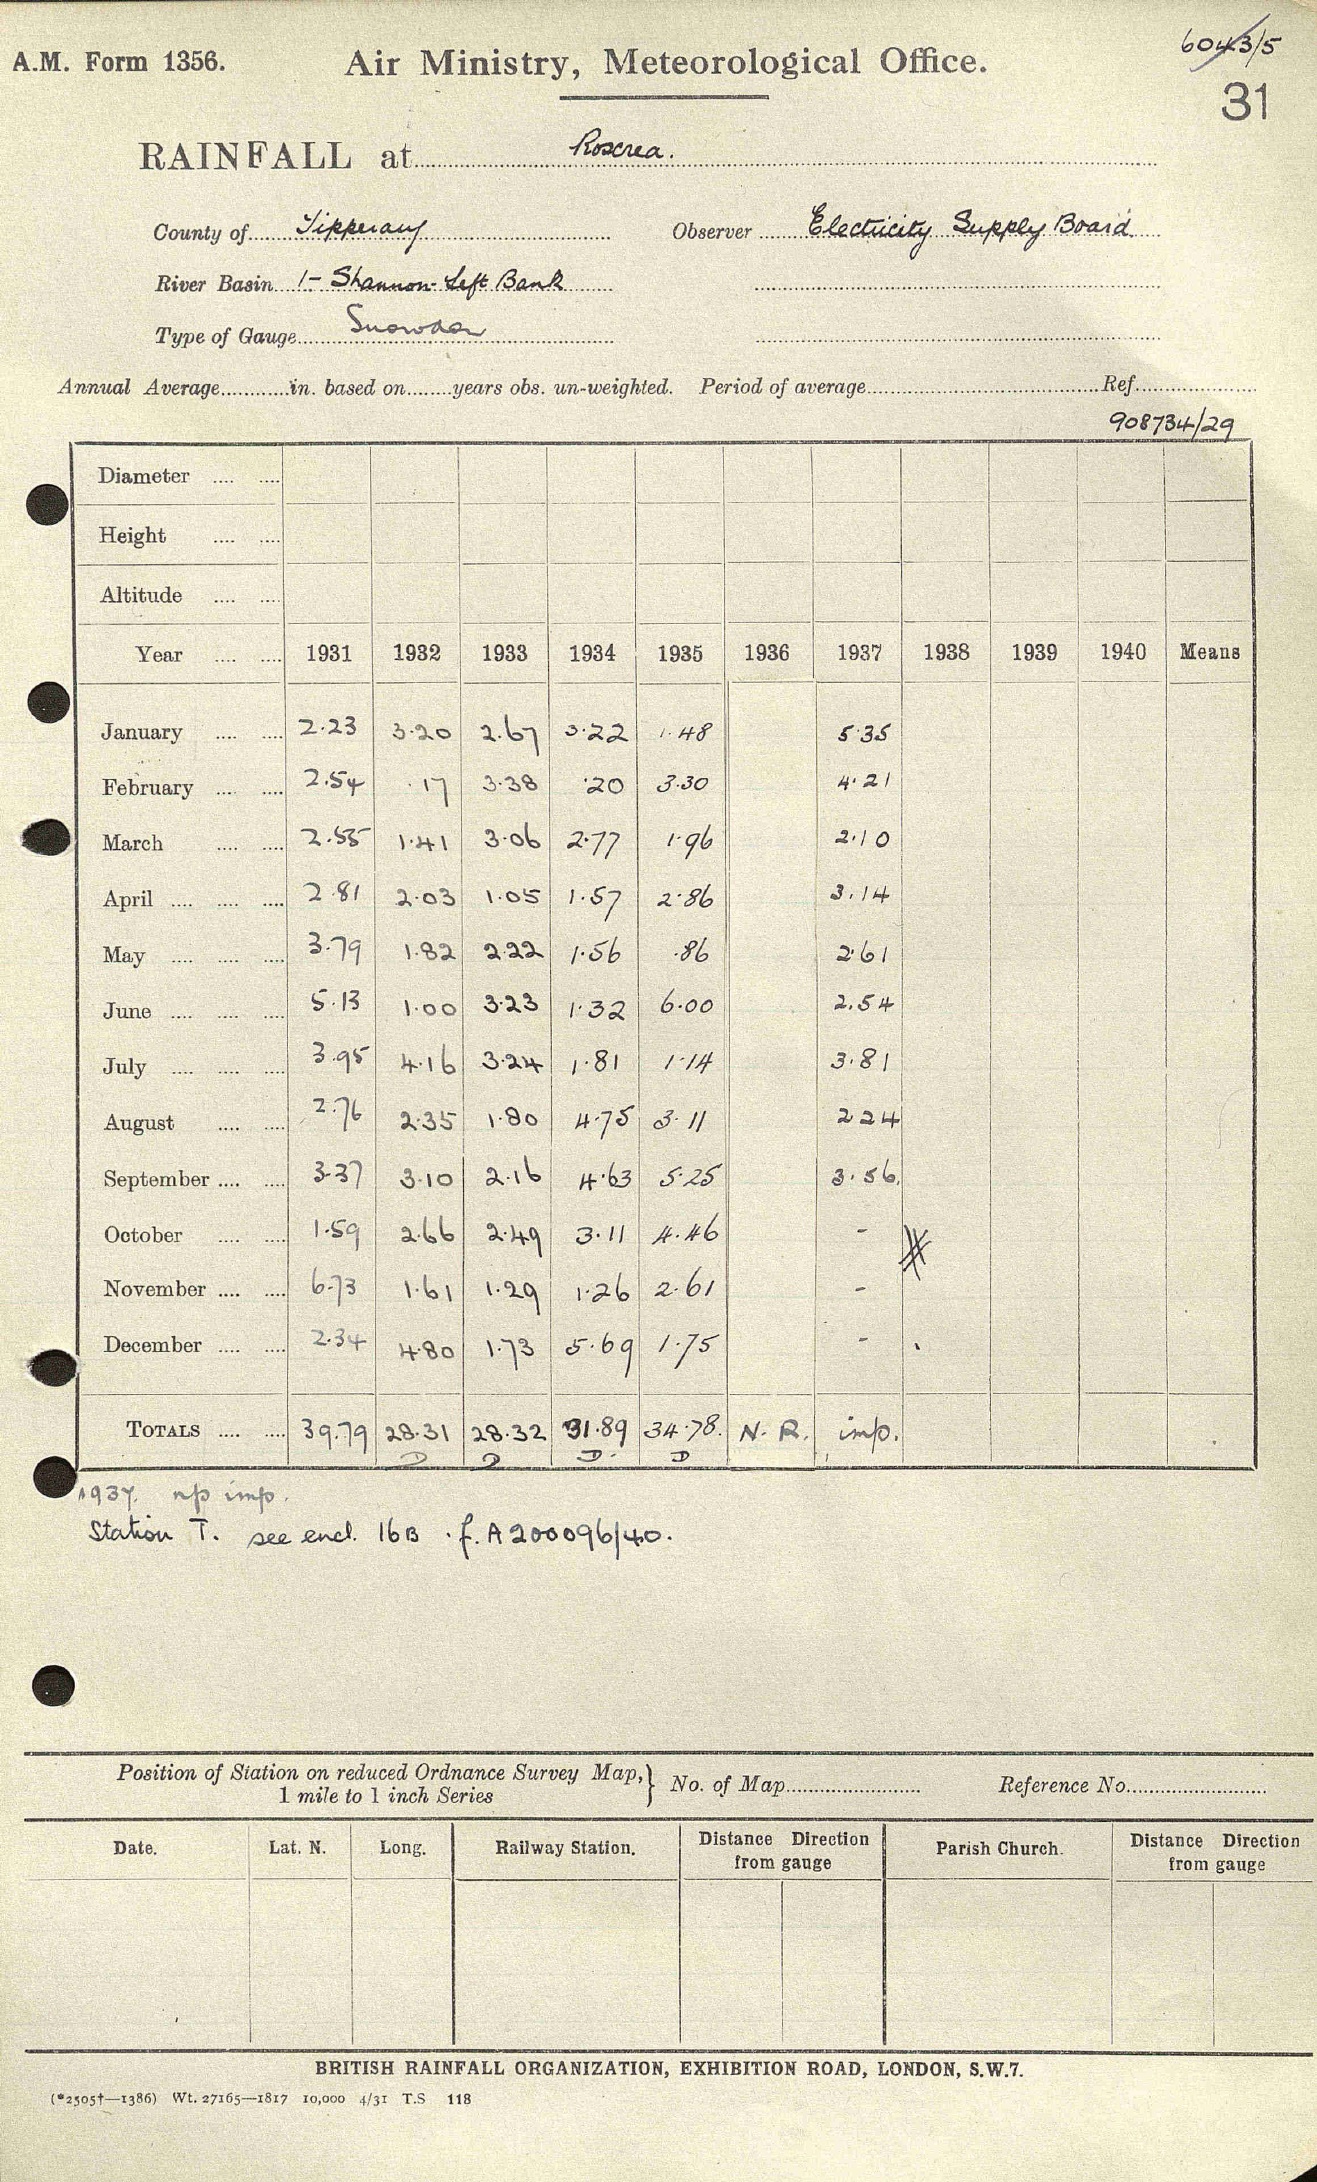 6043/5
A.M. Form 1356. Air Ministry, Meteorological Office.
31
RAINFALL at Roscrea.
County of Tipperary Observer Electricity Supply Board
River Basin 1- Shannon-Left Bank
Type of Gauge Snowdon
Annual Average in. based on years obs. un-weighted. Period of average Ref.
908734/29
Diameter
Height
Altitude
Year 1931 1932 1933 1934 1935 1936 1937 1938 1939 1940 Means
January 2.23 3.20 2.67 3.22 1.48 5.35
February 2.54 .17 3.38 .20 3.30 4.21
March 2.55 1.41 3.06 2.77 1.96 2.10
April 2.81 2.03 1.05 1.57 2.86 3.14
May 3.79 1.82 2.22 1.56 .86 2.61
June 5.13 1.00 3.23 1.32 6.00 2.54
July 3.95 4.16 3.24 1.81 1.14 3.81
August 2.76 2.35 1.80 4.75 3.11 2 24
September 3.37 3.10 2.16 4.63 5.25 3.56
October 1.59 2.66 2.49 3.11 4.46 -
November 6.73 1.61 1.29 1.26 2.61 -
December 2.34 4.80 1.73 5.69 1.75 -
TOTALS 39.79 28.31 28.32 31.89 34.78. N. R. imp.
D D D D
1937. np imp.
Station T. see encl. 16B . f. A200096/40.
Position of Station on reduced Ordnance Survey Map, } No. of Map Reference No.
1 mile to 1 inch Series
Date. Lat. N. Long. Railway Station. Distance Direction from gauge Parish Church. Distance Direction from gauge
BRITISH RAINFALL ORGANIZATION, EXHIBITION ROAD, LONDON, S.W.7.
(*2505†—1386) Wt. 27165—1817 10,000 4/31 T.S 118